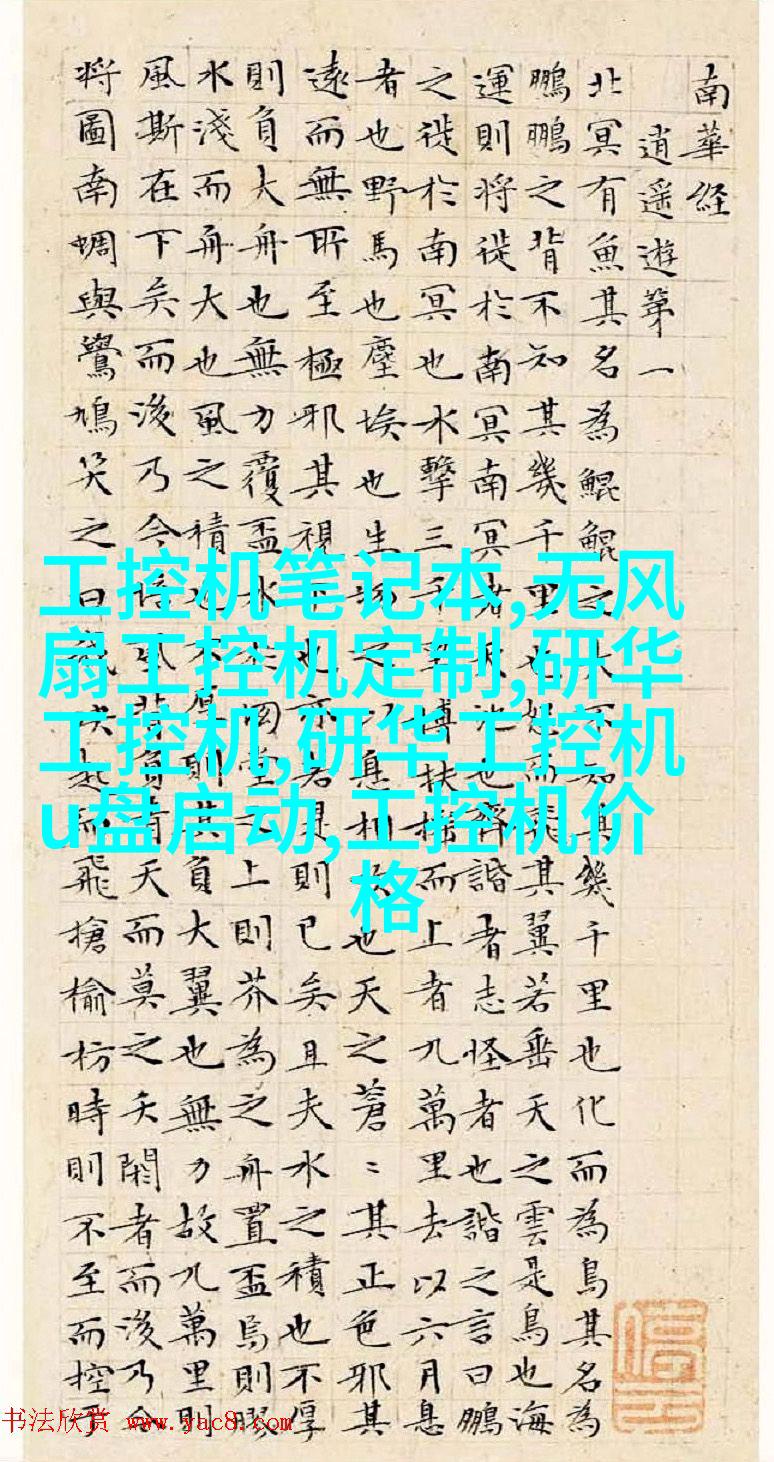 南華経
逍遥遊第一
北冥有魚其名為鯤鯤之大不知其幾千里也化而為鳥其名為
鵬鵬之背不知其幾千里也怒而飛其翼若垂天之雲是鳥也海
運則将徙於南冥南冥者天池也齊諧者志怪者也諧之言曰鵬
之徙於南冥也水擊三千里摶扶搖而上者九萬里去以六月息
者也野馬也塵埃也生物之以息相吹也天之蒼〻其正色邪其
遠而無所至極邪其視下也亦若是則已矣且夫水之積也不厚
則負大舟也無力覆盃水於坳堂之上則芥為之舟置盃焉則膠
水淺而舟大也風之積也不厚則其負大翼也無力故九萬里則
風斯在下矣而後乃今培風背負青天而莫之夭閼者而後乃今
将圖南蜩與鷽鳩笑之曰我決起而飛搶榆枋時則不至而控於
工控机笔记本,无风
扇工控机定制,研华
工控机,研华工控机
u盘启动,工控机价
格
书法欣赏 www.yac8.com